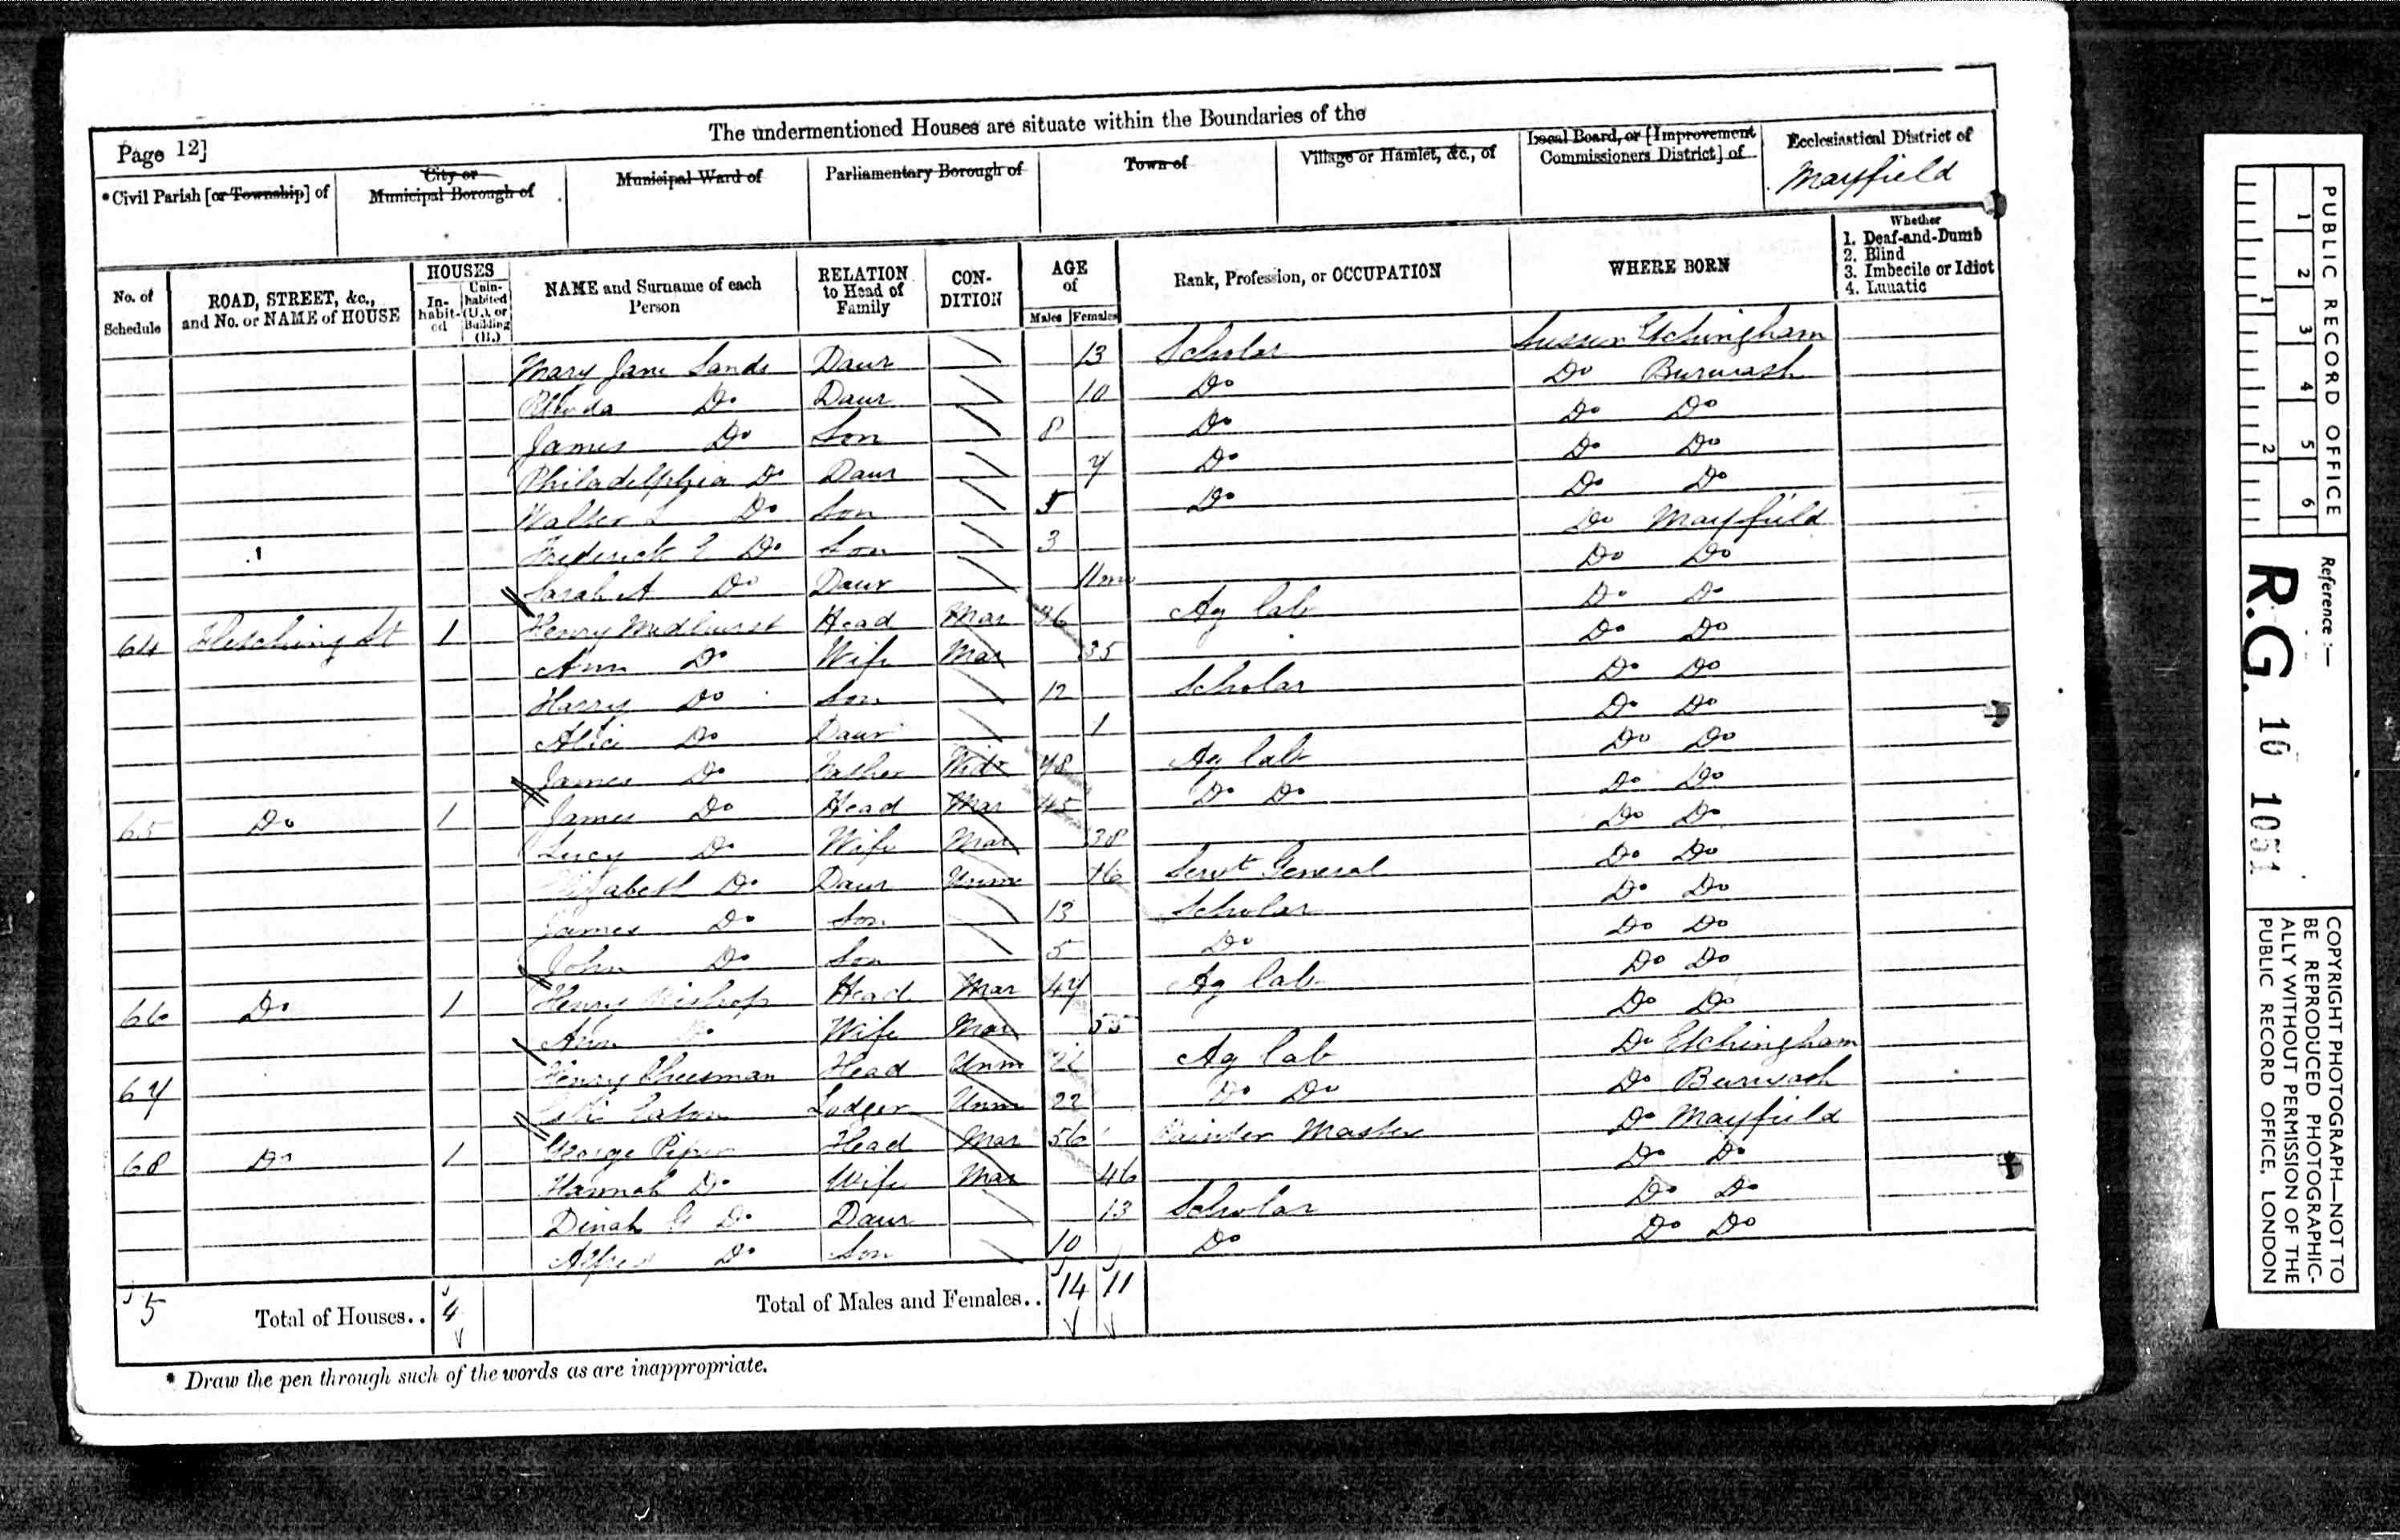 The undermentioned Houses are situate within the Boundaries of the
Page 12]
*Civil Parish [or Township] of
City or Municipal Borough of
Municipal Ward of
Parliamentary Borough of
Town of
Village or Hamlet, &c., of
Local Board, or [Improvement Commissioners District] of
Ecclesiastical District of
Mayfield
No. of Schedule
ROAD, STREET, &c., and No. or NAME of HOUSE
HOUSES
In-habit-ed
Unin-habited (U.), or Building (B.)
NAME and Surname of each Person
RELATION to Head of Family
CON-DITION
AGE of
Males Females
Rank, Profession, or OCCUPATION
WHERE BORN
Whether
1. Deaf-and-Dumb
2. Blind
3. Imbecile or Idiot
4. Lunatic
Mary Jane Sands Daur 13 Scholar Sussex Etchingham
Rhoda Do Daur 10 Do Do Burwash
James Do Son 8 Do Do Do
Philadelphia Do Daur 7 Do Do Do
Walter L Do Son 5 Do Do Do
Frederick E Do Son 3 Do Mayfield
Sarah A Do Daur 11mo Do Do
64 Fletching St 1 Henry Midhurst Head Mar 36 Ag Lab Do Do
Ann Do Wife Mar 35 Do Do
Harry Do Son 12 Scholar Do Do
Alice Do Daur 1 Do Do
James Do Father Widr 78 Ag Lab Do Do
65 Do 1 James Do Head Mar 45 Do Do Do Do
Lucy Do Wife Mar 38 Do Do
Elizabeth Do Daur Unm 16 Servt General Do Do
James Do Son 13 Scholar Do Do
John Do Son 5 Do Do Do
66 Do 1 Henry Head Mar 47 Ag Lab Do Do
Ann Do Wife Mar 55 Do Do
67 Henry Cheesman Head Unm 22 Ag Lab Do Etchingham
Eaton Lodger Unm 22 Do Do Do Burwash
68 Do 1 George Piper Head Mar 56 Painter Master Do Mayfield
Hannah Do Wife Mar 46 Do Do
Dinah G Do Daur 13 Scholar Do Do
Alfred Do Son 10 Do Do Do
5 Total of Houses.. 4 Total of Males and Females.. 14 11
* Draw the pen through such of the words as are inappropriate.
PUBLIC RECORD OFFICE
1 2 3 4 5 6
1 2
Reference :—
R.G. 10 1051
COPYRIGHT PHOTOGRAPH—NOT TO
BE REPRODUCED PHOTOGRAPHIC-
ALLY WITHOUT PERMISSION OF THE
PUBLIC RECORD OFFICE, LONDON